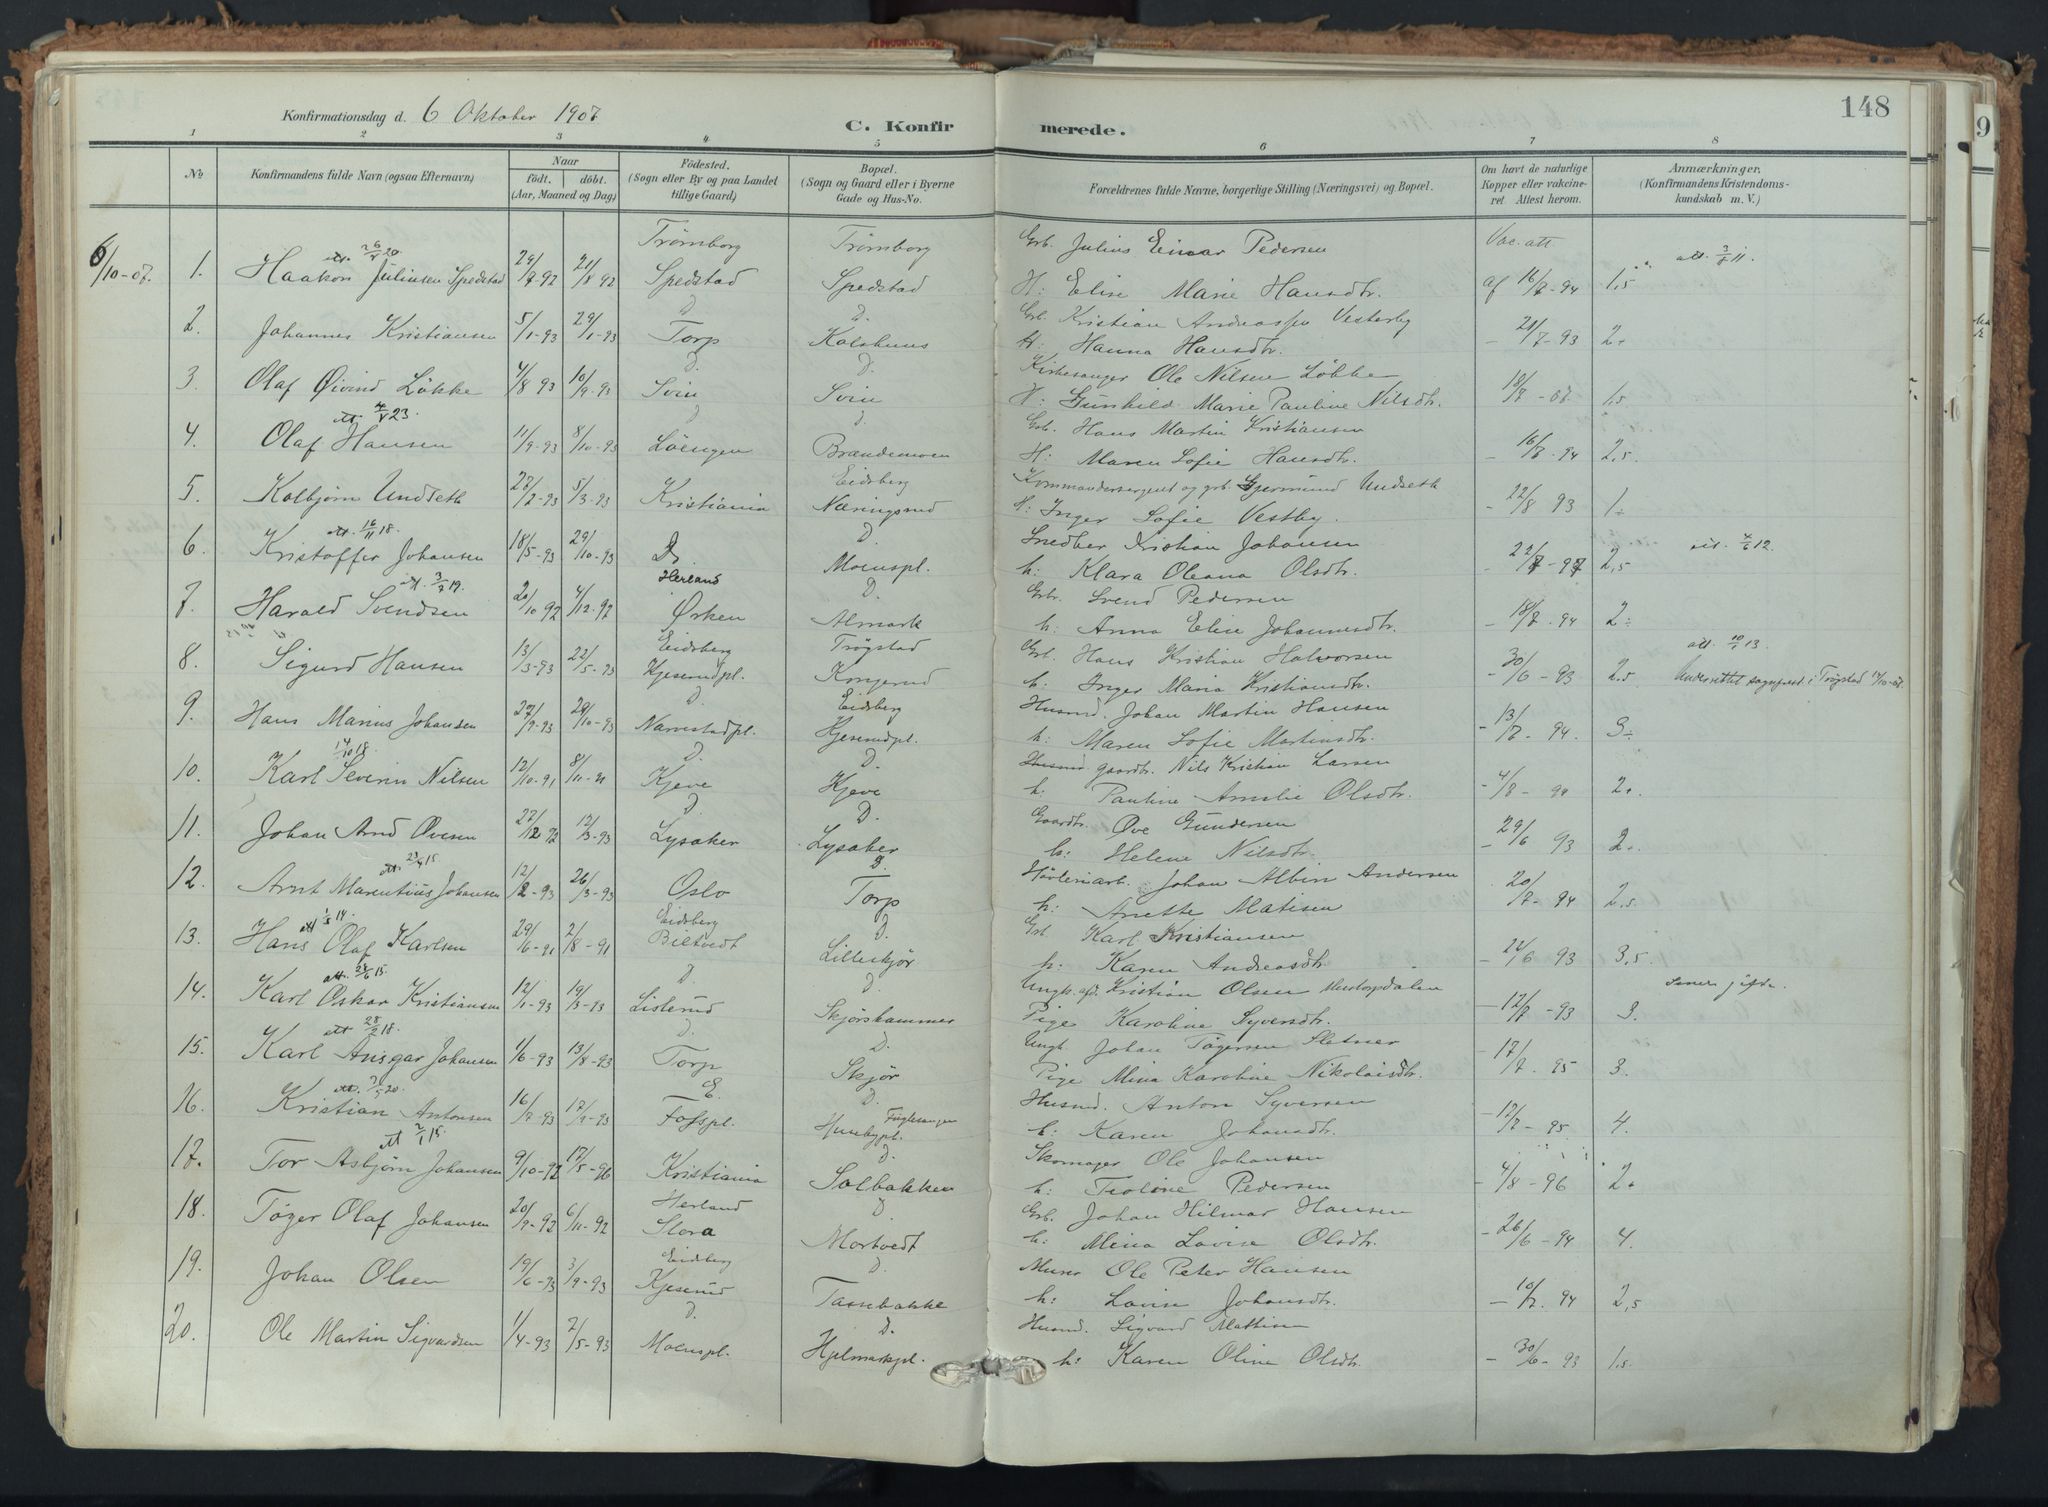 148
Konfirmationsdag d. 6 Oktober 1907
C. Konfirmerede.
1 2 3 4 5 6 7 8
No
Konfirmandens fulde Navn (ogsaa Efternavn)
Naar
födt. döbt.
(Aar, Maaned og Dag)
Födested.
(Sogn eller By og paa Landet tillige Gaard)
Bopæl.
(Sogn og Gaard eller i Byerne Gade og Hus-No.
Forældrenes fulde Navne, borgerlige Stilling (Næringsvei) og Bopæl.
Om havt de naturlige Kopper eller vakcineret. Attest herom.
Anmærkninger.
(Konfirmandens Kristendomskundskab m. V.)
Trömborg Trömborg Grb. Julius Einar Pedersen Vac. att.
6/10-07. 1. Haakon Juliusen Spedstad 29/7-92 21/8 92 Spedstad Spedstad H: Elise Marie Hansdtr. af 16/7-94 1,5
D. D. Grb. Kristian Andreassen Vesterby
2. Johannes Kristiansen 5/1-93 29/1-93 Torp Kolshuus H: Hanna Hansdtr. - 21/7-93 2.
D. D. Kirkesanger Ole Nilsen Lökke
3. Olaf Øivind Lökke 4/8 93 10/9-93 Svin Svin H: Gunhild Marie Pauline Nilsdtr. 18/7-07. 1,5
att. 4/5 23 D. D. Grb. Hans Martin Kristiansen
4. Olaf Hansen 11/9-93 8/10-93 Löengen Brandemoen H: Maren Sofie Hansdtr. - 16/8-94 2,5.
Eidsberg Kommandersergent og grb. Gjermund Undseth
5. Kolbjörn Undseth 27/2-93 5/3-93 Kristiania Næringsrud H: Inger Sofie Vestby. - 22/8 93 1÷
att. 16/11 18. D. Snedker Kristian Johansen att. 4/6 12.
6. Kristoffer Johansen 18/5-93 29/10-93 D. Moenspl. h: Klara Oleana Olsdtr. - 22/7-97 2,5
Herland D. Grbr. Svend Pedersen
7. Harald Svendsen 20/10 92 4/12-92 Ørken Almark h: Anna Elise Johannesdtr. - 18/7-94 2÷
Eidsberg Trögstad Grb. Hans Kristian Halvorsen att. 10/5 13.
8. Sigurd Hansen 13/3-93 22/5-93 Kjeserudpl. Kongerud h: Inger Maria Kristiansdtr. - 30/6-93 2.5 Underrettet sognepræst. i Trögstad 14/10-07.
D. Eidsberg Husmd. Johan Martin Hansen
9. Hans Marius Johansen 27/9-93 29/10-93 Narvestadpl. Kjeserudpl. h: Maren Sofie Martinsdtr. - 13/7-94. 3÷
14/10 18. D. D. Husmd. gaardbr. Nils Kristian Larsen
10. Karl Severin Nilsen 12/10-91 8/11-91 Kjeve Kjeve h: Pauline Amalie Olsdtr. - 4/8-94 2.
D. D. Gaardbr. Ove Gundersen
11. Johan Arnd Ovesen 22/12 92 12/3-93 Lysaker Lysaker h: Helene Nilsdtr. - 29/6 93 2.
att. 23/4 15 D. Hövleriarb. Johan Albin Andersen
12. Arnt Marentius Johansen 12/2-93 26/3-93 Oslo Torp h: Anette Matisen 20/7-94 2,5.
att 1/5 14 Eidsberg D. Grb. Karl Kristiansen
13. Hans Olaf Karlsen 29/6-91 2/8-91 Biltvedt Lilleskjör h: Karen Andreasdtr. - 22/6 93 3,5.
att. 24/6 15. D. D. Ungk. afd. Kristian Olsen
14. Karl Oskar Kristiansen 12/1-93 19/3-93 Listerud Skjörshammer Pige Karoline Syversdtr. - 12/7-93 3.
att 28/2 18. D. D. Ungk. Johan Tögersen Sletner
15. Karl Ansgar Johansen 1/6-93 13/8-93 Torp Skjör Pige Mina Karoline Nikolaisdtr. - 17/7-95 3.
att. 7/5 20. E. D. Husmd. Anton Syversen
16. Kristian Antonsen 16/7-93 17/9-93 Fosspl. Husebypl. Fuglesangen h: Karen Johansdtr. - 12/7-95 4.
att 2/1 15. D. Skomager Ole Johansen
17. Tor Asbjörn Johansen 9/10-92 17/5-96 Kristiania Solbakken h: Tioline Pedersen - 4/8-96 2.
Herland D. Grb. Johan Hilmar Hansen
18. Töger Olaf Johansen 20/9-92 6/11-92 Slora Mortvedt h: Mina Lovise Olsdtr. - 26/6-94 4.
Eidsberg D. Murer Ole Peter Hansen
19. Johan Olsen 19/6-93 3/9-93 Kjeserud Tassebakke h: Lovise Johansdtr. - 10/7. 94 2,5
D. D. Husmd. Sigvard Mattisen
20. Ole Martin Sigvardsen 1/4-93 2/5-93 Moenspl. Hjelmarkpl. h: Karen Oline Olsdtr. - 30/6-93 1,5